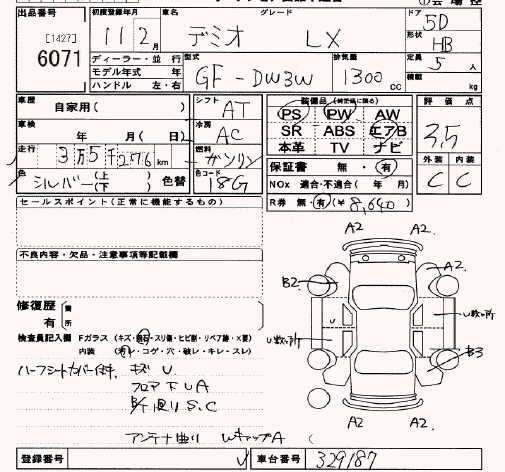 出品番号 初度登録年月 車名 グレード ドア 5D
[1427] 11 2月 デミオ LX 形状 HB
6071 ディーラー・並行 型式 排気量 定員 5人
モデル年式 年 GF-DW3W 1300 cc 積載 kg
ハンドル 左・右
車歴 自家用( ) シフト AT 装備品(純正品に限る) 評価点
車検 年 月( 日) 冷房 AC PS PW AW 3.5
SR ABS エアB
走行 3万5千256km 燃料 ガソリン 本革 TV ナビ 外装 内装
色 シルバー(上)(下) 色替 色コード 18G 保証書 無・有 C C
NOx 適合・不適合( 年 月)
セールスポイント(正常に機能するもの) R券 無・有(¥8,640)
A2 A2
不良内容・欠品・注意事項等記載欄
A2 A2
B2
U数ヶ所
修復歴 無 有 箇所 U
検査員記入欄 Fガラス(キズ・飛石・スリ傷・ヒビ割・リペア跡・×要) U数ヶ所
内装(汚レ・コゲ・穴・破レ・キレ・スレ)
B3
ハーフシートカバー付 キズU
フロア下UA
S.C
A2 A2
アンテナ曲り WキャップA
登録番号 車台番号 329187